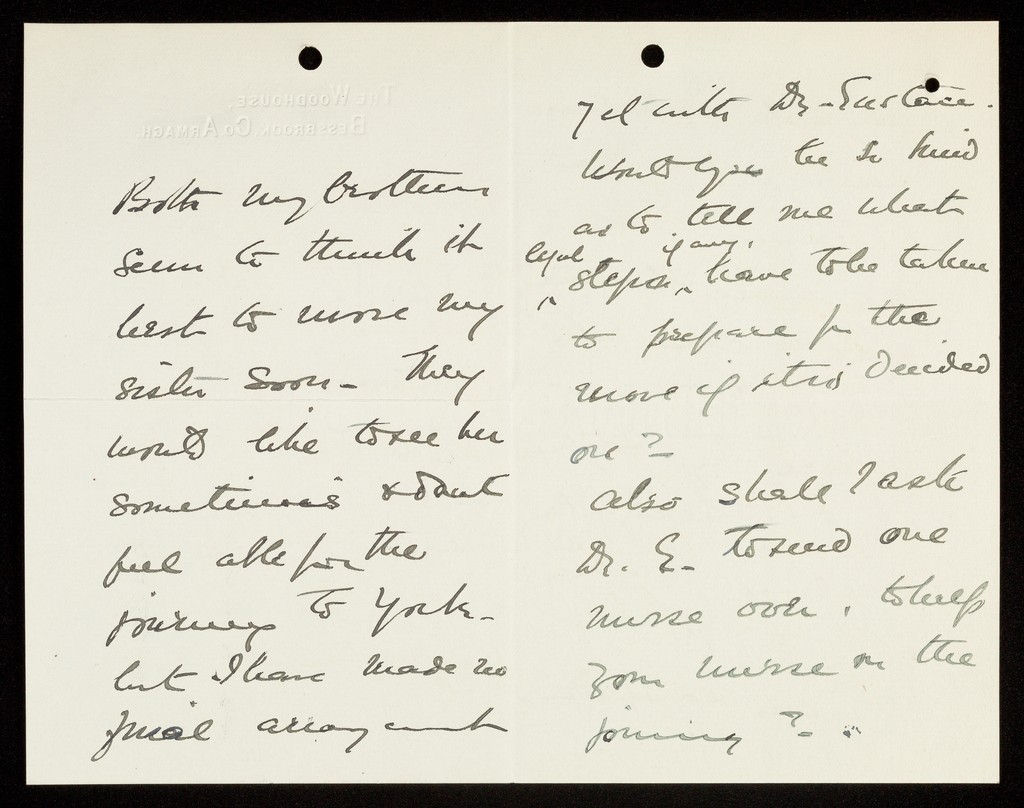 THE WOODHOUSE,
BESSBROOK, CO ARMAGH.
Both my brothers
seem to think it
best to move my
sister soon - They
would like to see her
sometimes & dont
feel able for the
journey to York -
but I have made no
final arrangement
yet with Dr. Eustace.
Would you be so kind
as to tell me what
legal if any,
steps, have to be taken
to prepare for the
move if it is decided
on?
also shall I ask
Dr. E. to send one
nurse over, to help
your nurse on the
journey?